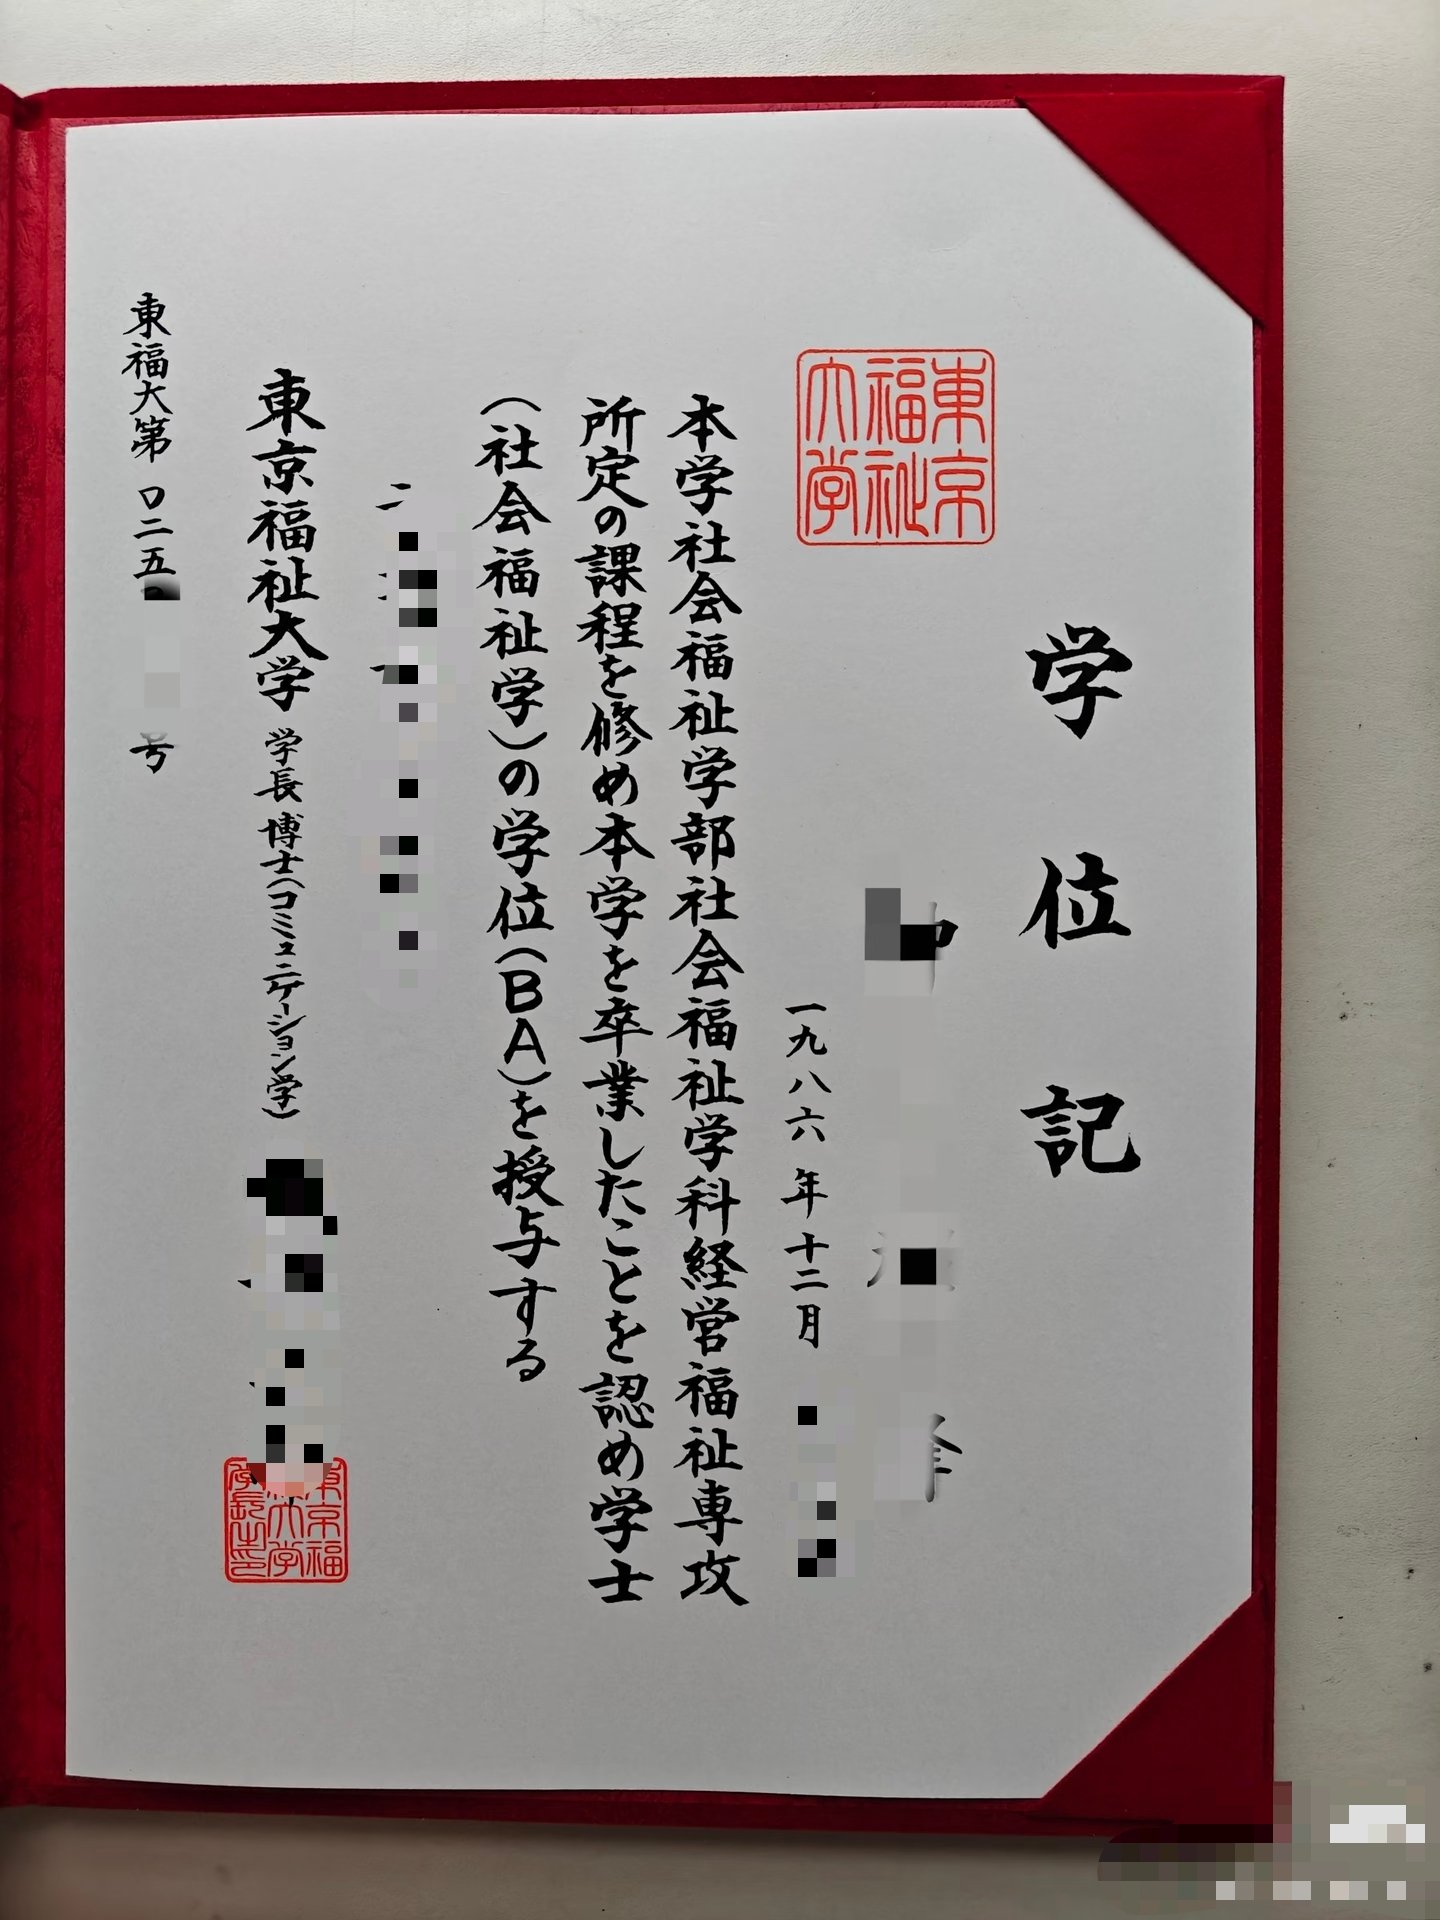 学位記
東京福祉大学
一九八六年十二月
本学社会福祉学部社会福祉学科経営福祉専攻
所定の課程を修め本学を卒業したことを認め学士
(社会福祉学)の学位(BA)を授与する
二
東京福祉大学 学長 博士(コミュニケーション学)
東福大第〇二五 号